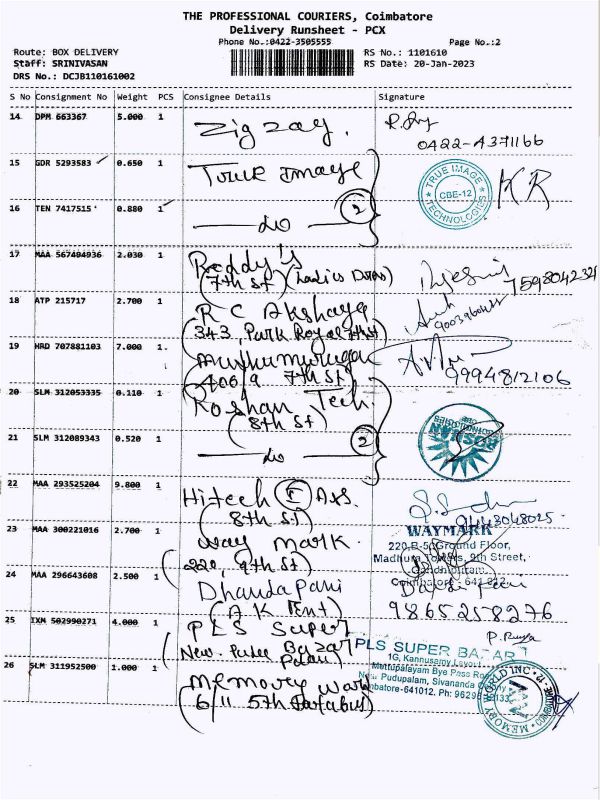 THE PROFESSIONAL COURIERS, Coimbatore
Delivery Runsheet - PCX
Phone No.:0422-3505555 Page No.:2
Route: BOX DELIVERY RS No.: 1101610
Staff: SRINIVASAN RS Date: 20-Jan-2023
DRS No.: DCJB110161002
S No Consignment No Weight PCS Consignee Details Signature
14 DPM 663367 5.000 1 Zigzag.
0422-4371166
15 GDR 5293583 0.650 1 True Image
TRUE IMAGE TECHNOLOGIES CBE-12 KR
16 TEN 7417515 0.880 1 do 2
17 MAA 567404936 2.030 1 Reddy's
(7th St) (Ladies Dress) 7598042321
18 ATP 215717 2.700 1 R C Akshaya
(343, Park Royal 7th St)
19 HRD 707881103 7.000 1 Muthumurugan
406/9 7th St 9994812106
20 SLM 312053335 0.110 1 Roshan Tech
(8th St)
21 SLM 312089343 0.520 1 do 2
ROSHAN TECHNOLOGIES
22 MAA 293525204 9.800 1 Hitech
(8th St) 9443048025
23 MAA 300221016 2.700 1 Way Mark
(220, 9th St)
WAYMARK
220,B-5, Ground Floor,
Madhum Towers, 9th Street,
Gandhipuram
Coimbatore - 641 012
24 MAA 296643608 2.500 1 Dhandapani
(A K Tent) 9865258276
25 IXM 502990271 4.000 1 PLS Super
Bazar
PLS SUPER BAZAR
1G, Kannusamy Layout
Mettupalayam Bye Pass Road
New Pudupalam, Sivananda Colony
Coimbatore-641012.
26 SLM 311952500 1.000 1 Memory World
(6/11 5th
MEMORY WORLD INC